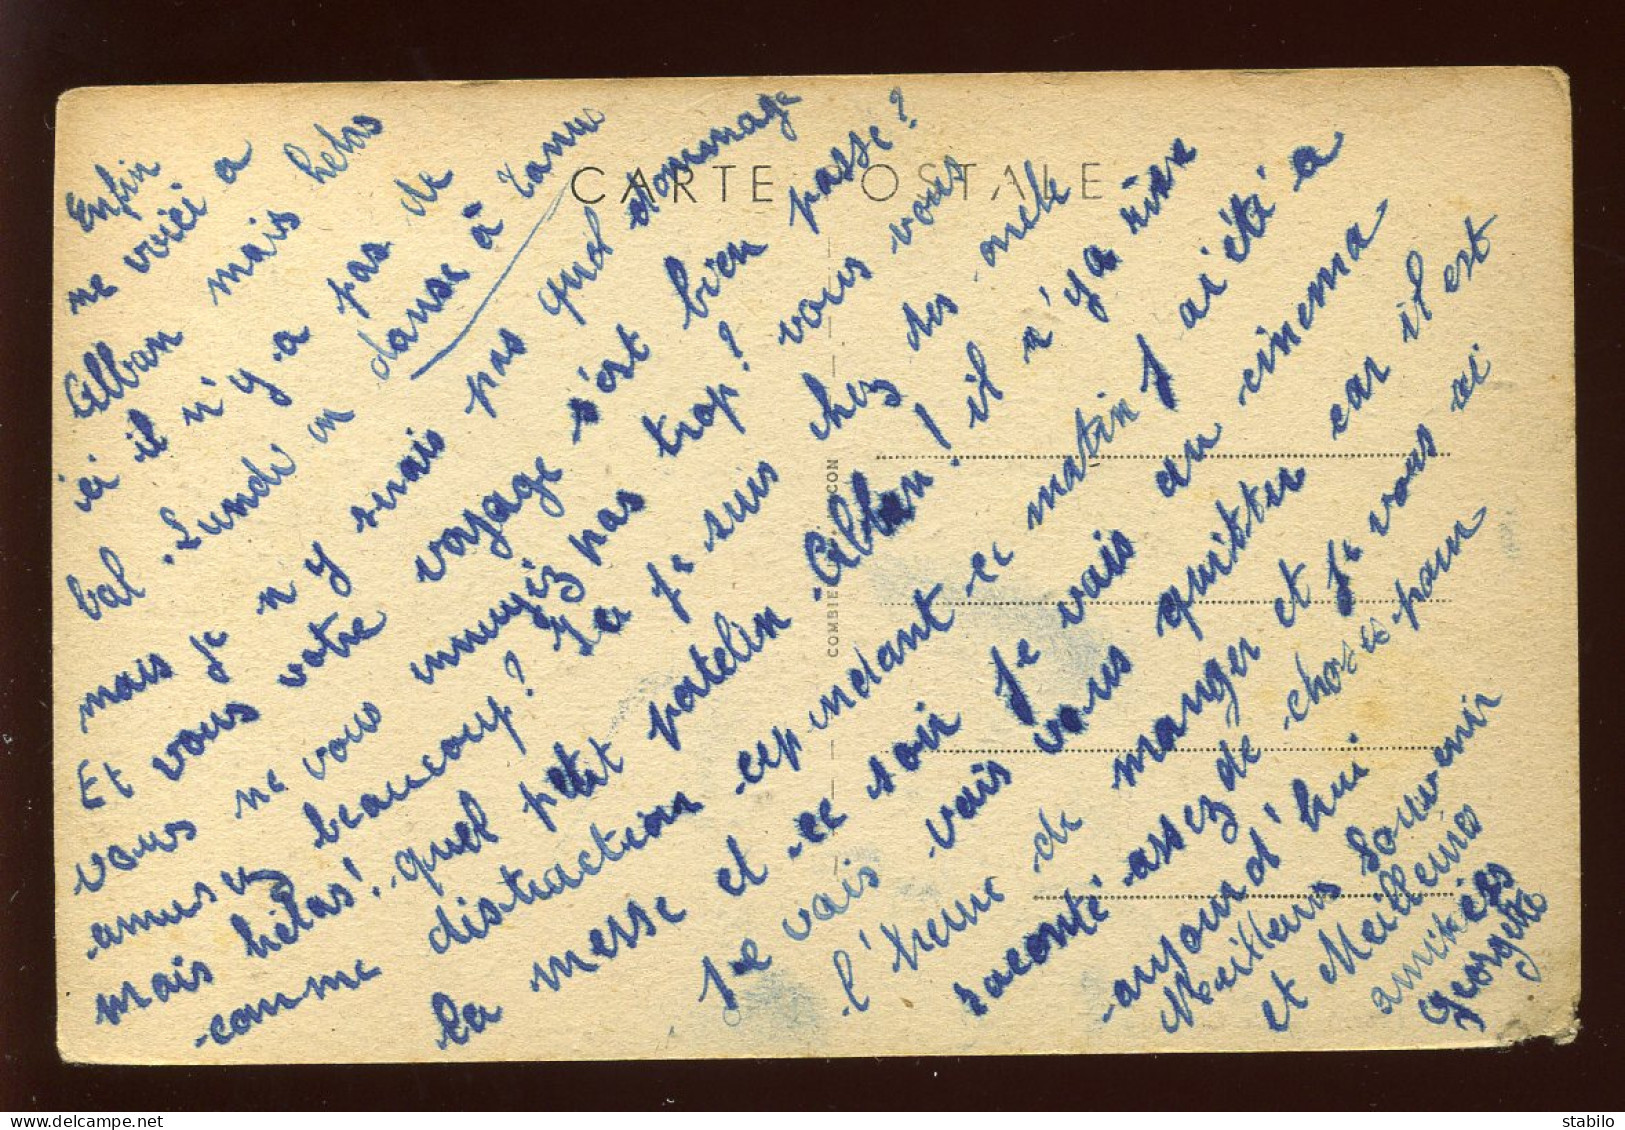 CARTE POSTALE
Enfin
me voici a
Alban mais helas
ici il n'y a pas de
bal. Lundi on danse à Tanus
mais je n'y serais pas quel dommage
Et vous votre voyage s'est bien passe?
vous ne vous ennuyiez pas trop? vous vous
amusez beaucoup? Ici je suis chez des
mais hélas! quel petit patelin Alban! il n'y a rien
comme distraction cependant ce matin j'ai été a
la messe et ce soir je vais au cinema
Je vais vais vous quitter car il est
l'heure de manger et je vous ai
raconté assez de choses pour
aujourd'hui
Meilleurs Souvenir
et Meilleures
amitiés
Georgette
COMBIER
CON
stabilo | delcampe.net